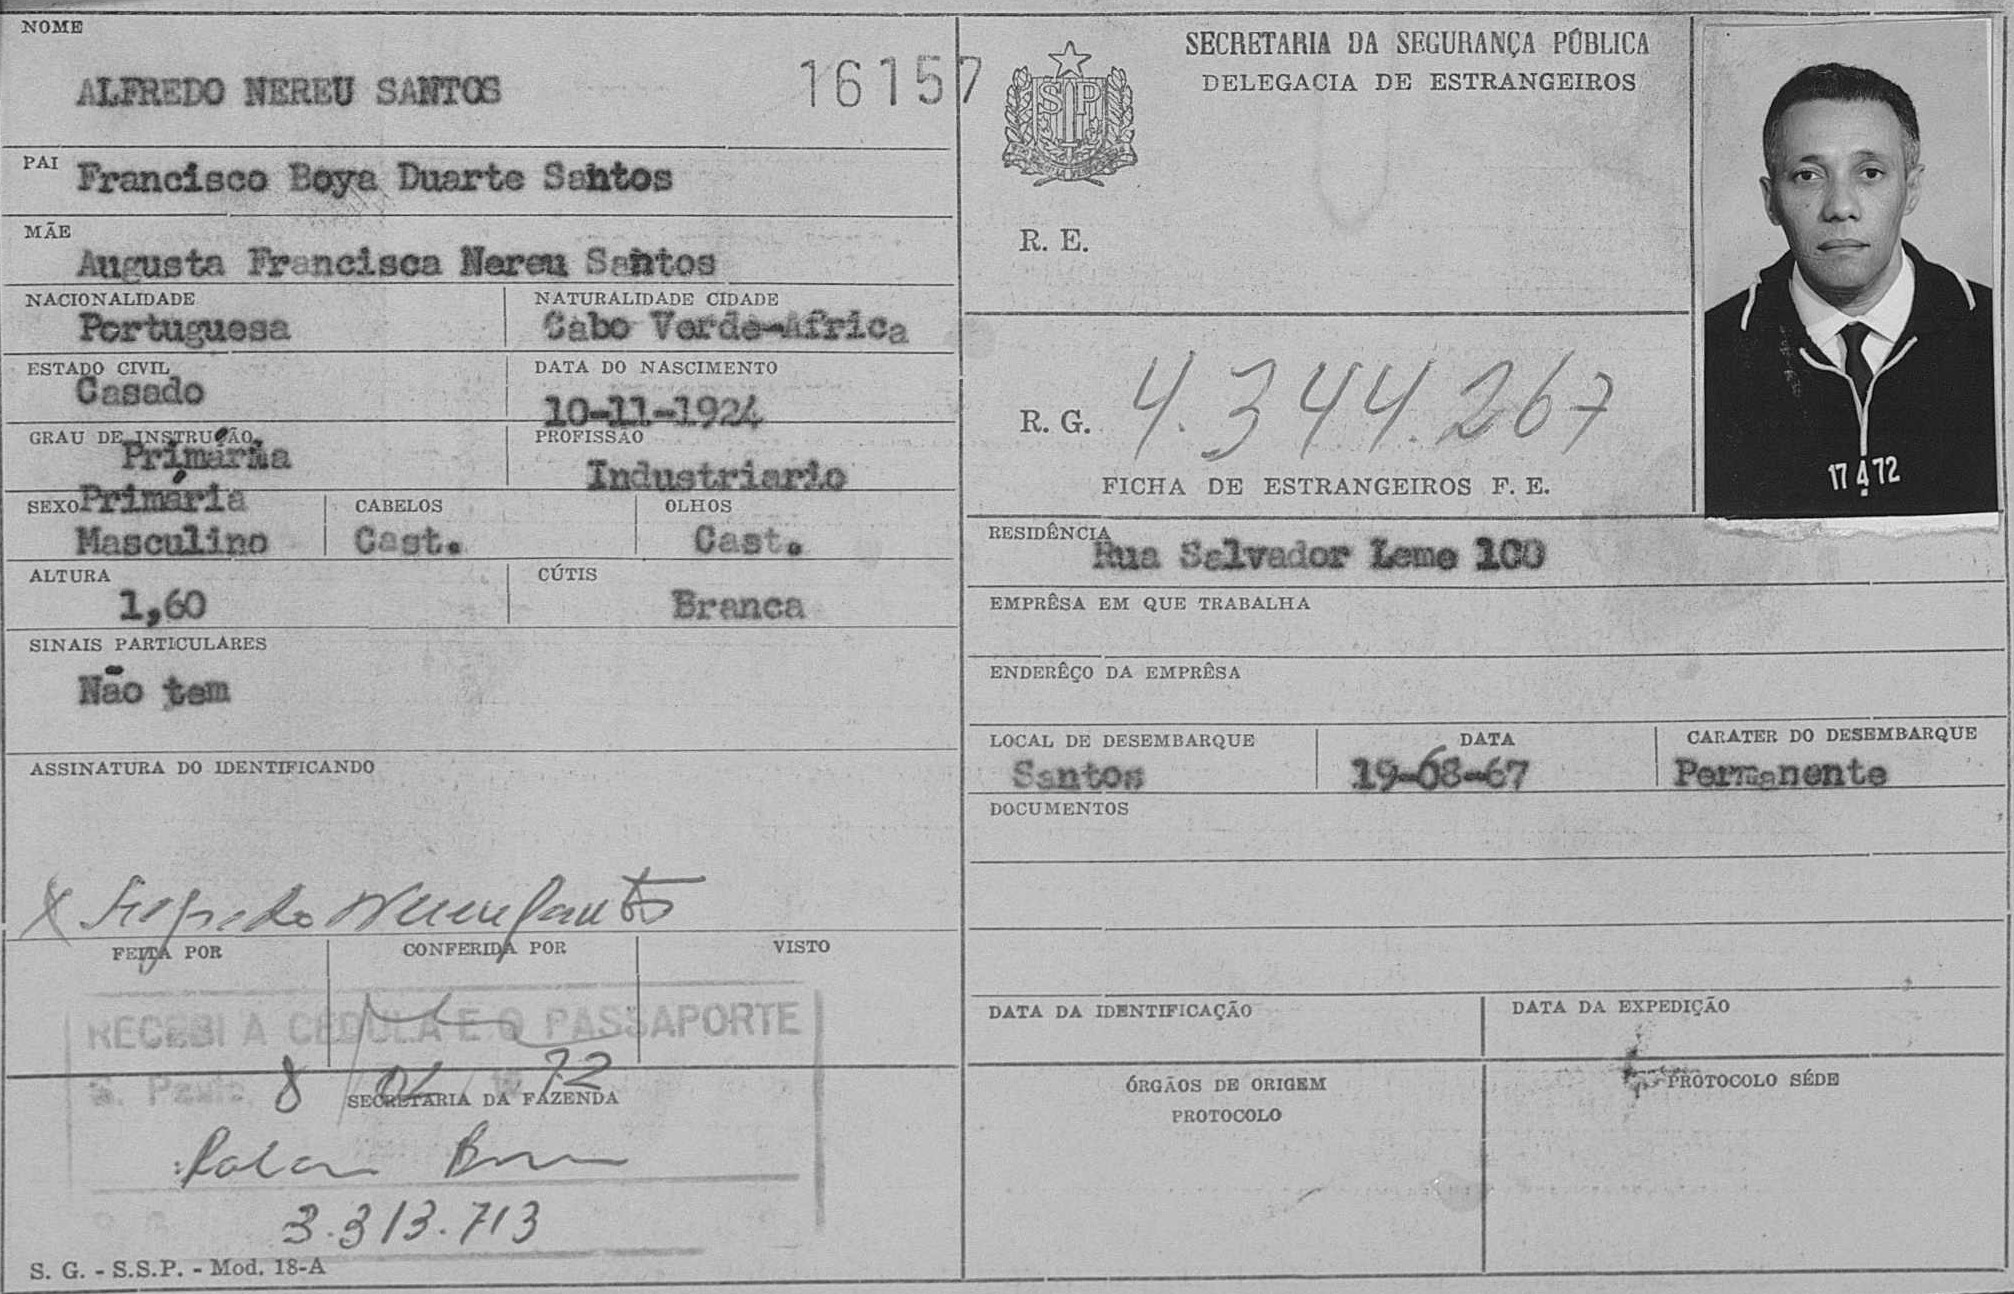 NOME
ALFREDO NEREU SANTOS
16157
PAI Francisco Boya Duarte Santos
MÃE
Augusta Francisca Nereu Santos
NACIONALIDADE
Portuguesa
NATURALIDADE CIDADE
Cabo Verde-Africa
ESTADO CIVIL
Casado
DATA DO NASCIMENTO
10-11-1924
GRAU DE INSTRUÇÃO
Primária
PROFISSÃO
Industriario
SEXO
Masculino
CABELOS
Cast.
OLHOS
Cast.
ALTURA
1,60
CÚTIS
Branca
SINAIS PARTICULARES
Não tem
ASSINATURA DO IDENTIFICANDO
X Alfredo Nereu Santos
FEITA POR
CONFERIDA POR
VISTO
RECEBI A CEDULA E O PASSAPORTE
S. Paulo, 8 72
SECRETARIA DA FAZENDA
3.313.713
S. G. - S.S.P. - Mod. 18-A
SECRETARIA DA SEGURANÇA PÚBLICA
DELEGACIA DE ESTRANGEIROS
SP
R. E.
R. G. 4.344.267
FICHA DE ESTRANGEIROS F. E.
17 4 72
RESIDÊNCIA
Rua Salvador Leme 100
EMPRÊSA EM QUE TRABALHA
ENDERÊÇO DA EMPRÊSA
LOCAL DE DESEMBARQUE
Santos
DATA
19-08-67
CARATER DO DESEMBARQUE
Permanente
DOCUMENTOS
DATA DA IDENTIFICAÇÃO
DATA DA EXPEDIÇÃO
ÓRGÃOS DE ORIGEM
PROTOCOLO
PROTOCOLO SÉDE